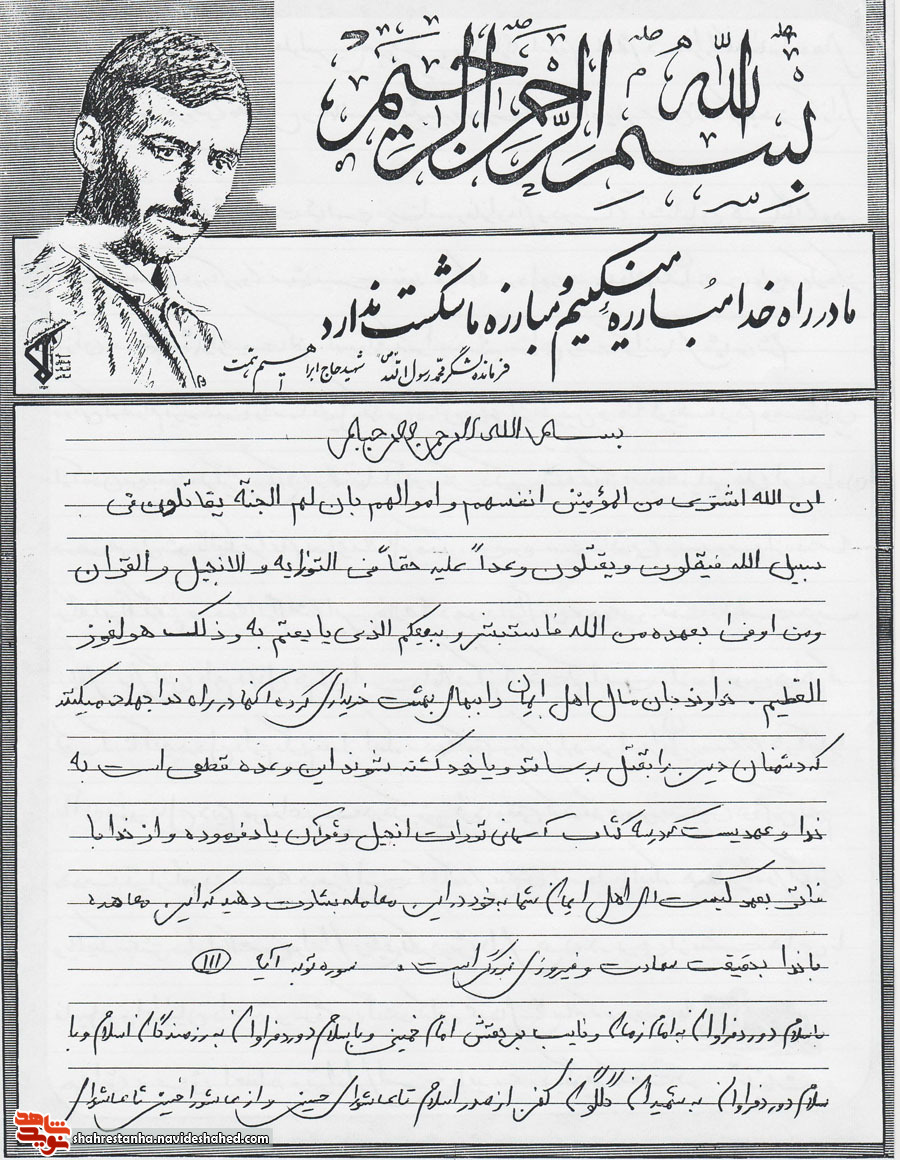 بسم الله الرحمن الرحیم
ما در راه خدا مبارزه میکنیم و مبارزه ما شکست ندارد
فرمانده لشگر محمد رسول الله (ص) شهید حاج ابراهیم همت
بسم الله الرحمن الرحیم
ان الله اشتری من المؤمنین انفسهم و اموالهم بان لهم الجنة یقاتلون فی
سبیل الله فیقلون و یقتلون وعداً علیه حقاً فی التوراية و الانجیل و القرآن
ومن اوفی بعهده من الله فاستبشر و ببیعکم الذی یا یعتم به و ذلک هو لفوز
العظیم . خداوند جان مال اهل ایمان را ببهای بهشت خریداری کرده آنها در راه خدا جهاد میکنند
که دشمنان دین را بقتل برسانند و یا خود کشته شوند این وعده قطعی است به
خدا و عهدیست که در سه کتاب آسمانی تورات انجیل و قرآن یاد فرموده و از خدا با
وفاتر بعهد کیست ای اهل ایمان شما به خود در این معامله بشارت دهید که این معاهده
با خدا بحقیقت سعادت و فیروزی بزرگی است . سوره توبه آیه (۱۱۱)
با سلام و درود فراوان به امام زمان و نایب بر حقش امام خمینی و با سلام و درود فراوان به رزمندگان اسلام و با
سلام و درود فراوان به شهیدان گلگون کفن از صدر اسلام تا عاشورای حسینی و از عاشورا حسینی تا عاشورای
شاهد
نوید
shahrestanha.navideshahed.com